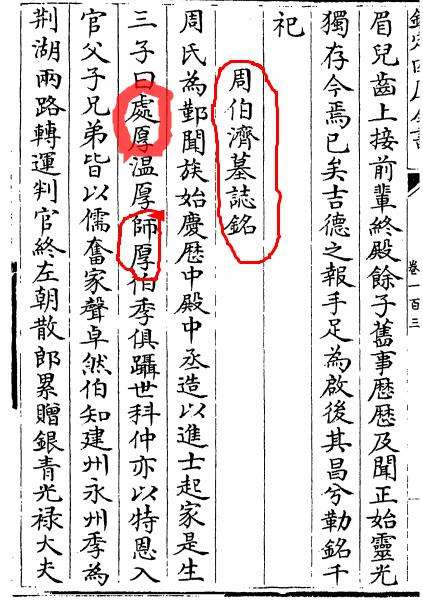 卷一百三
眉兒齒上接前輩終殿餘子舊事歷歷及聞正始靈光
獨存今焉已矣吉德之報手足為啟後其昌兮勒銘千
祀
周伯濟墓誌銘
周氏為鄞聞族始慶歷中殿中丞造以進士起家是生
三子曰處厚温厚師厚伯季俱躡世科仲亦以特恩入
官父子兄弟皆以儒奮家聲卓然伯知建州永州季為
荆湖兩路轉運判官終左朝散郎累贈銀青光禄大夫